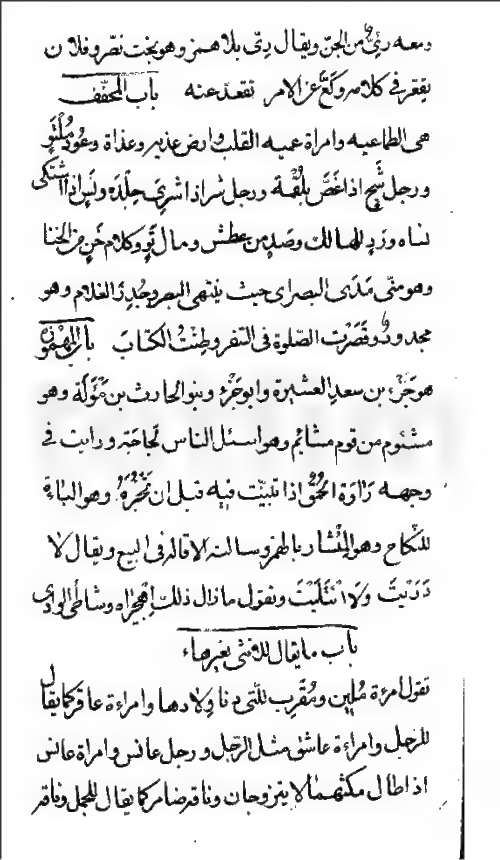 ومعه رئيّ من الجن ويقال ريّ بلا همز وهو بخت نصر وفلان
يقعر في كلامه وكعّ عن الامر تقعد عنه باب المخفف
هى الطماعيه وامراة عميه القلب وارض عذيه وعذاة وعود ملتو
ورجل شج اذا غصّ بلقمة ورجل شر اذا شرى جلده ونس اذا اشتكى
نساه ورد للهالك وصد من عطش ومال تو وكلام خن من الخنا
وهو منّى مدى البصر اى حيث ينتهى البصر وجدر الغلام وهو
مجدور وقصرت الصلوة فى السفر وطنت الكتاب باب المهموز
هو جزء بن سعد العشيرة وابو جزء وبنو الحارث بن موألة وهو
مشئوم من قوم مشائيم وهو اسئل الناس لحاجته ورايت في
وجهه رآوة الحمق اذا تبيّنت فيه قبل ان تخبره وهو الباءة
للنكاح وهو المنشار بالهمز وسالته الاقالة فى البيع ويقال لا
دريت ولا ائتليت وتقول ما زال ذلك اهجيراه وشاطئ الوادى
باب ما يقال للانثى بغير هاء
تقول امرءة ملبن ومقرب للتى دنا ولادها وامراءة عاقر كما يقال
للرجل وامراءة عاشق مثل الرجل ورجل عانس وامراة عانس
اذا طال مكثهما لا يتزوجان وناقه ضامر كما يقال للجمل وناقه